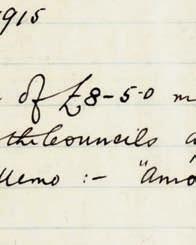 1915
of £8-5-0 m
the Councils a
Memo :- "Amo